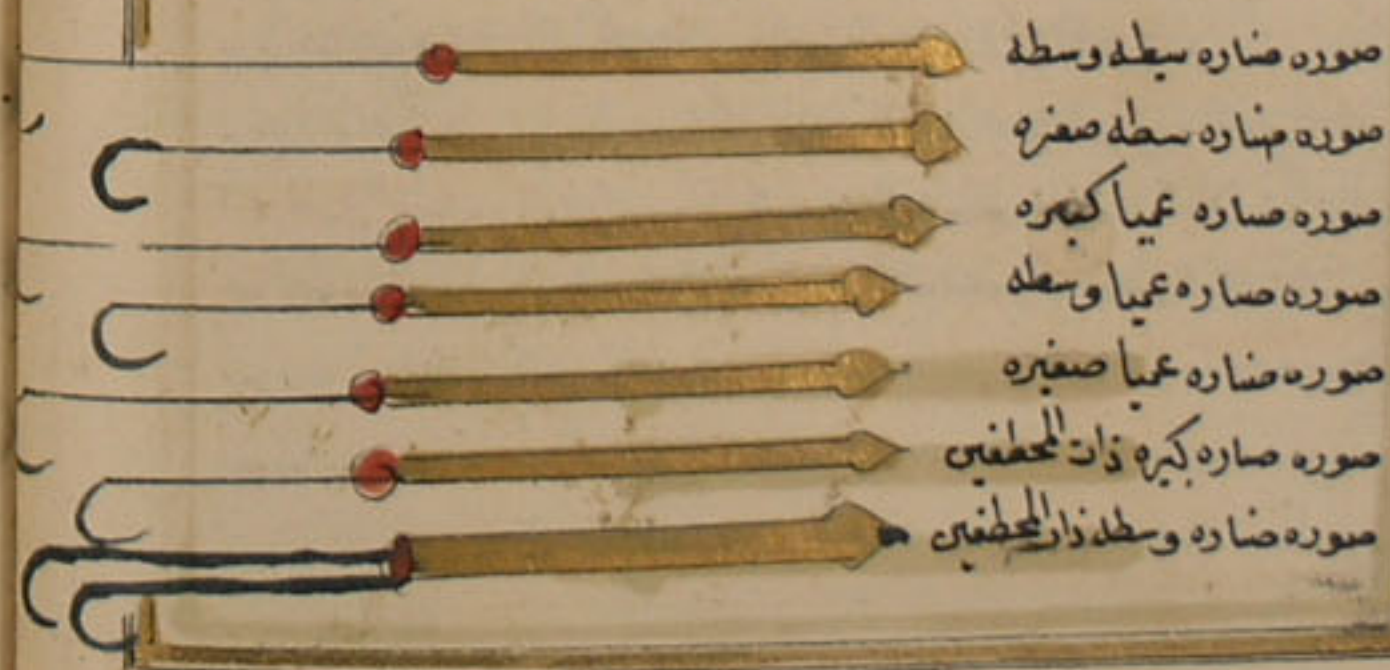 صوره صناره سبطه وسطه
صوره صناره سطه صغره
صوره صناره عميا كبيره
صوره صناره عميا وسطه
صوره صناره عميا صغيره
صوره صناره كبيره ذات المخطفين
صوره صناره وسطه ذات المخطفين